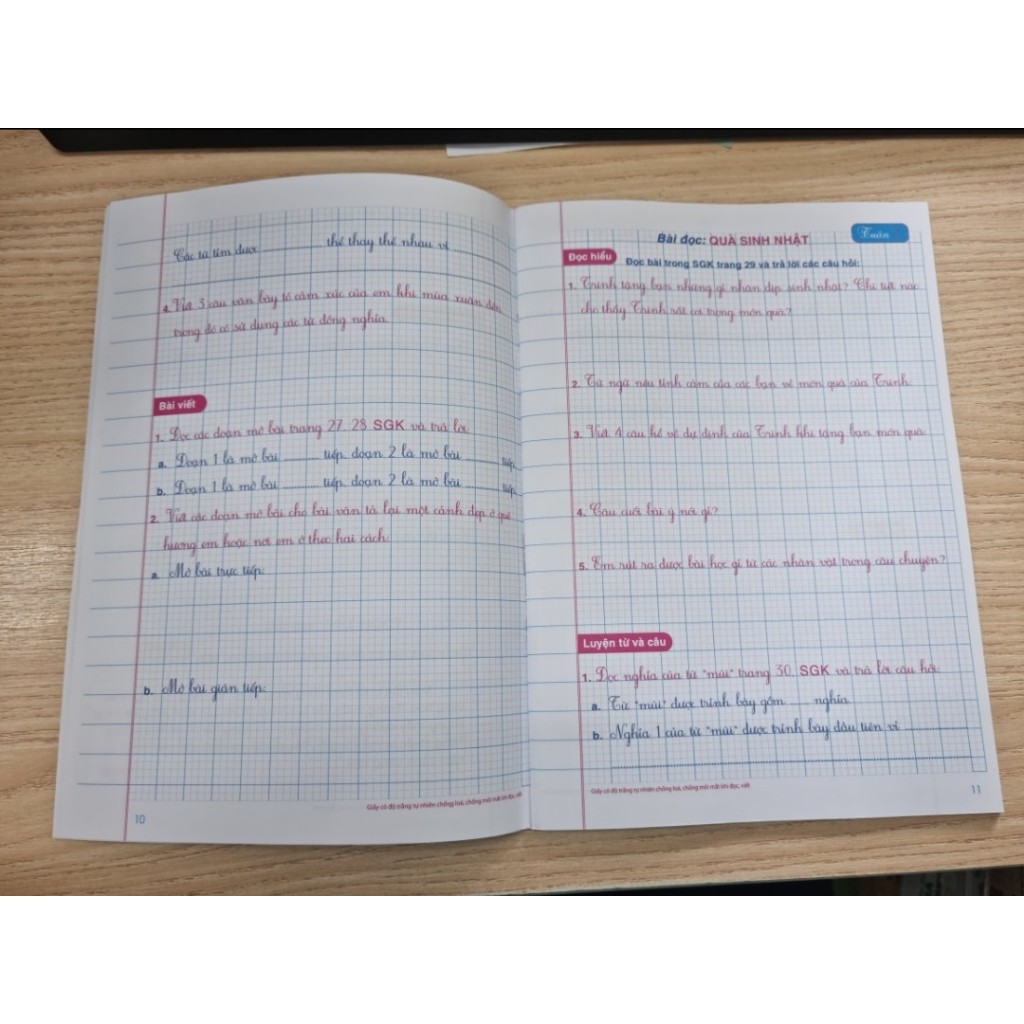 Các từ tìm được ............ thể thay thế nhau vì
4. Viết 3 câu văn bày tỏ cảm xúc của em khi mùa xuân đến,
trong đó có sử dụng các từ đồng nghĩa.
Bài viết
1. Đọc các đoạn mở bài trang 27, 28 SGK và trả lời
a. Đoạn 1 là mở bài ............ tiếp, đoạn 2 là mở bài ............ tiếp.
b. Đoạn 1 là mở bài ............ tiếp, đoạn 2 là mở bài ............ tiếp.
2. Viết các đoạn mở bài cho bài văn tả lại một cảnh đẹp ở quê
hương em hoặc nơi em ở theo hai cách:
a. Mở bài trực tiếp:
b. Mở bài gián tiếp:
Giấy có độ trắng tự nhiên chống loá, chống mỏi mắt khi đọc, viết
10
Tuần
Bài đọc: QUÀ SINH NHẬT
Đọc hiểu
Đọc bài trong SGK trang 29 và trả lời các câu hỏi:
1. Trinh tặng bạn những gì nhân dịp sinh nhật? Chi tiết nào
cho thấy Trinh rất coi trọng món quà?
2. Từ ngữ nêu tình cảm của các bạn về món quà của Trinh.
3. Viết 4 câu kể về dự định của Trinh khi tặng bạn món quà.
4. Câu cuối bài ý nói gì?
5. Em rút ra được bài học gì từ các nhân vật trong câu chuyện?
Luyện từ và câu
1. Đọc nghĩa của từ "mùi" trang 30, SGK và trả lời câu hỏi:
a. Từ "mùi" được trình bày gồm ...... nghĩa.
b. Nghĩa 1 của từ "mùi" được trình bày đầu tiên vì ............
Giấy có độ trắng tự nhiên chống loá, chống mỏi mắt khi đọc, viết
11